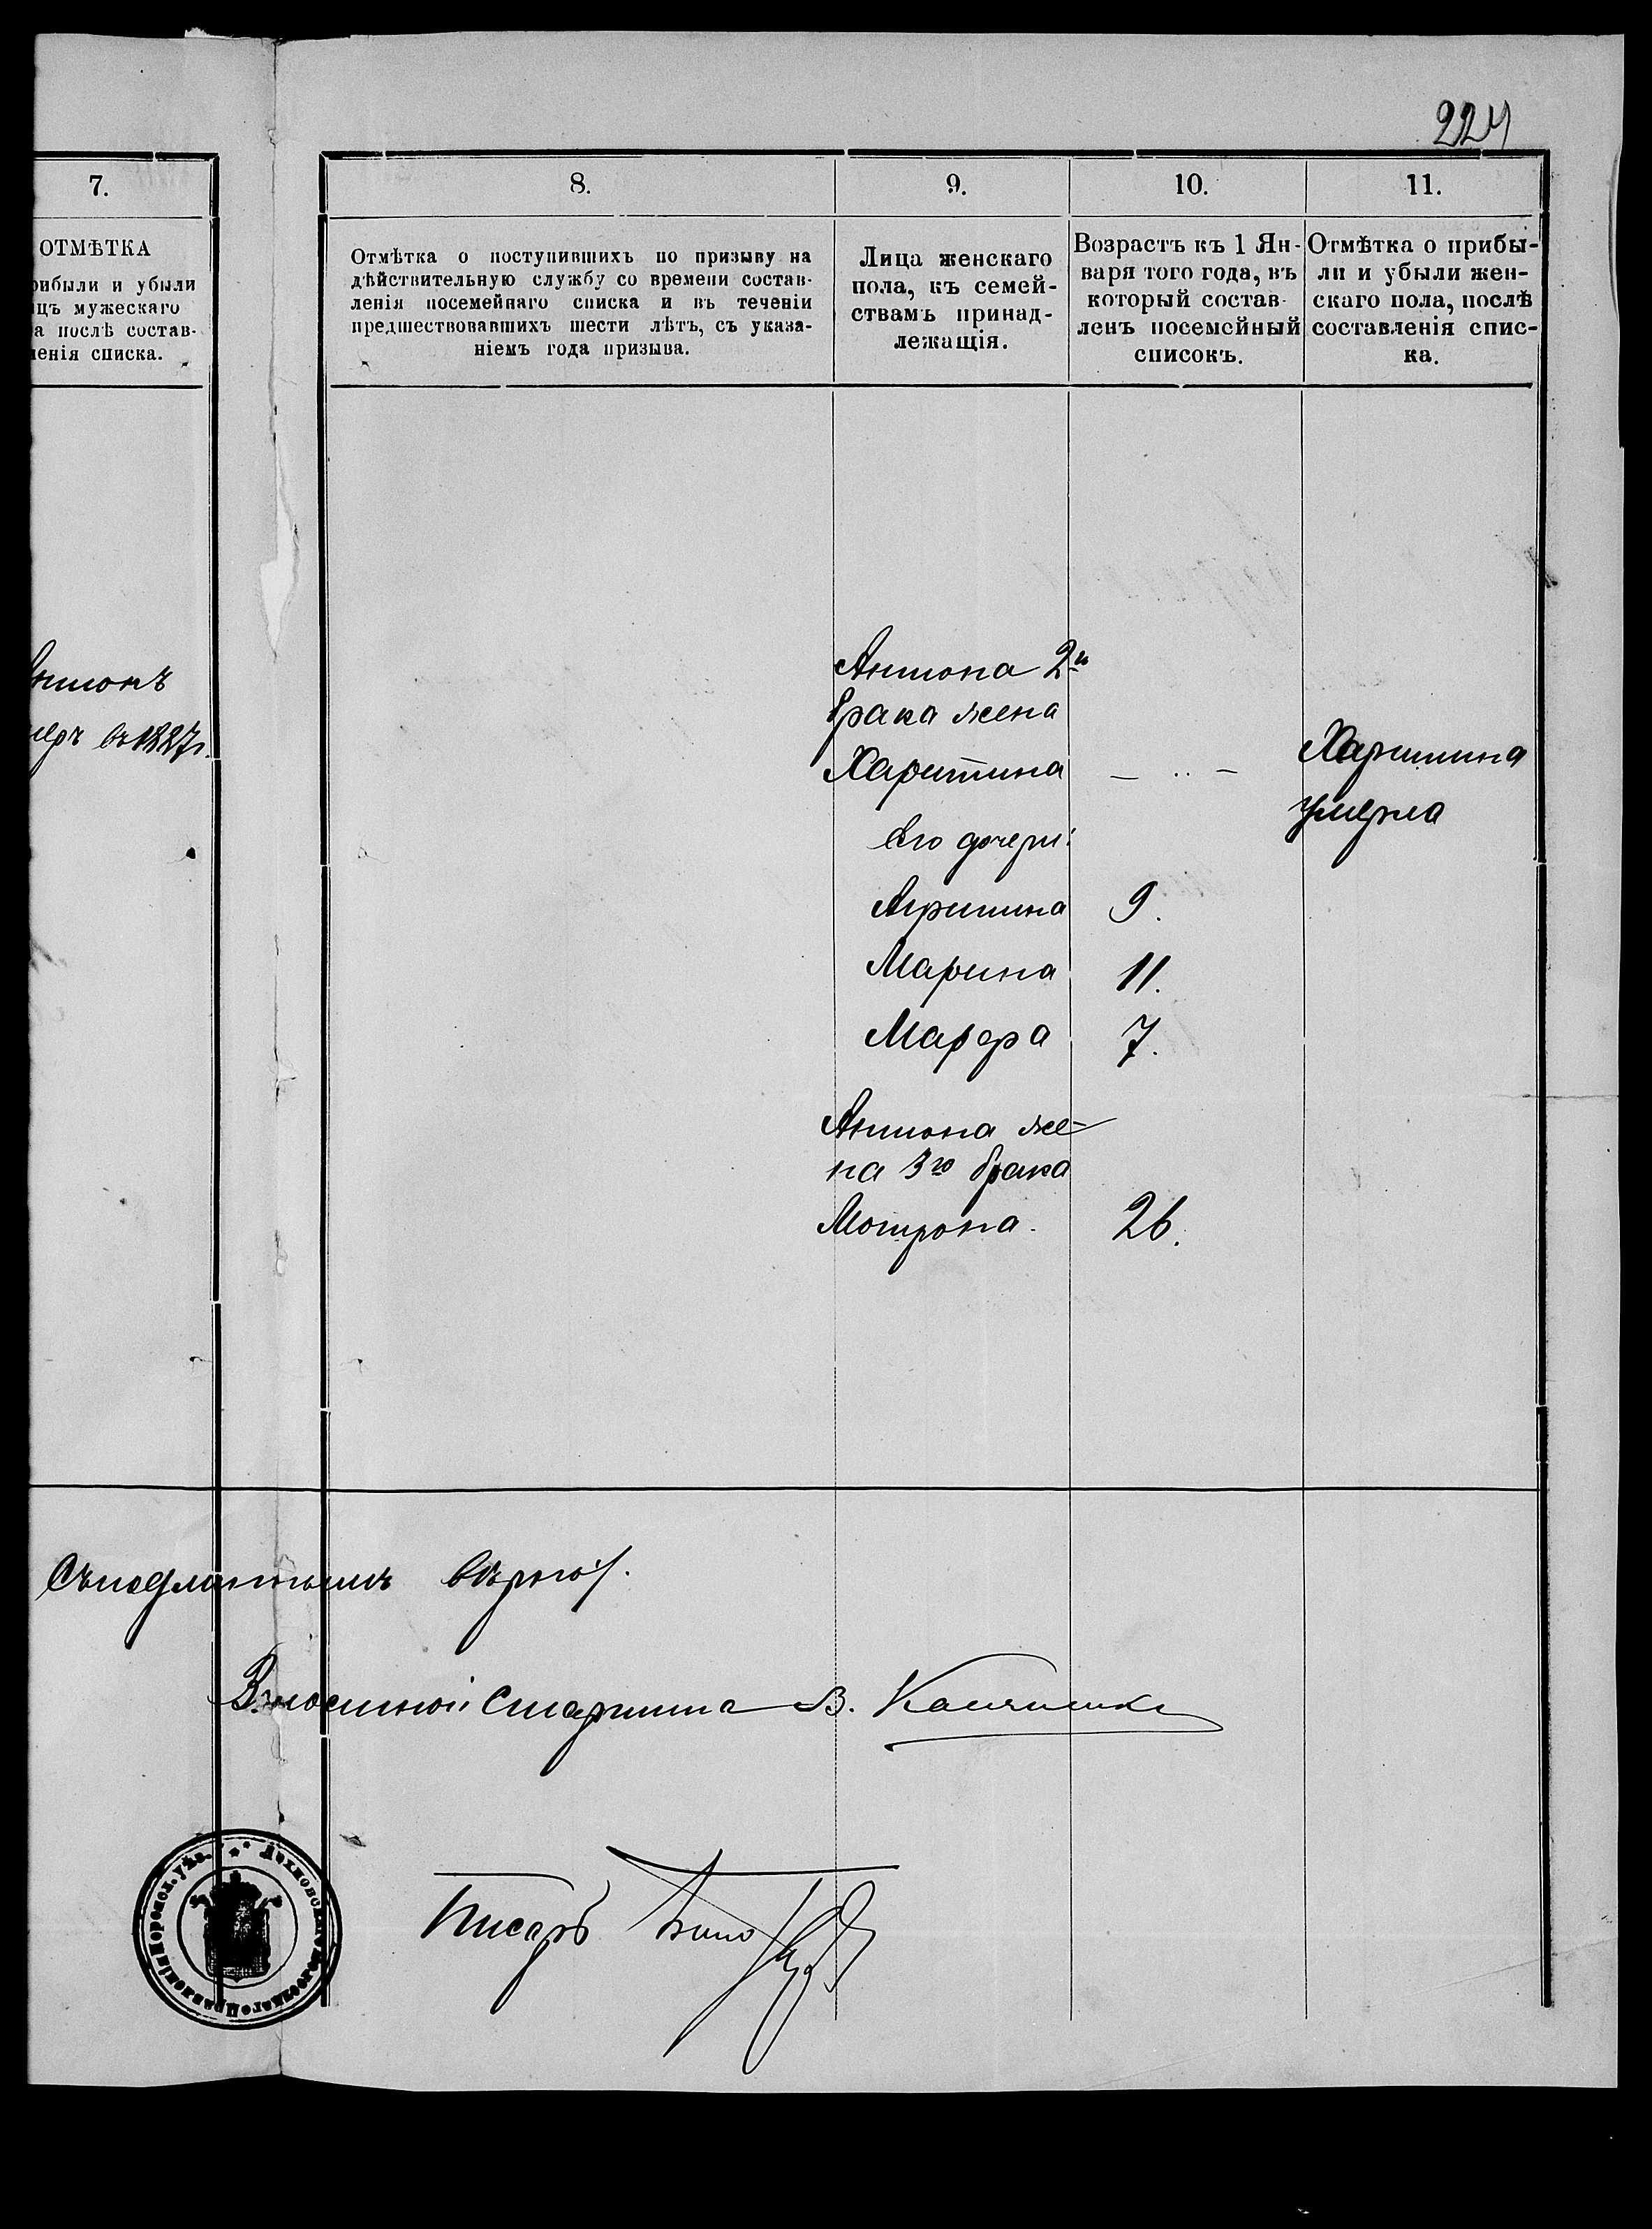 224
7.
ОТМѢТКА
рибыли и убыли
цъ мужескаго
а послѣ состав-
ленія списка.
Антонъ
въ 1887г.
8.
Отмѣтка о поступившихъ по призыву на
дѣйствительную службу со времени состав-
ленія посемейнаго списка и въ теченіи
предшествовавшихъ шести лѣтъ, съ указа-
ніемъ года призыва.
9.
Лица женскаго
пола, къ семей-
ствамъ принад-
лежащія.
10.
Возрастъ къ 1 Ян-
варя того года, въ
который состав-
ленъ посемейный
списокъ.
11.
Отмѣтка о прибы-
ли и убыли жен-
скаго пола, послѣ
составленія спис-
ка.
Антона 2го
брака жена
Харитина
Харитина
умерла
Его дочери:
Агрипина 9.
Марина 11.
Марфа 7.
Антона же-
на 3го брака
Мотрона. 26.
Съ подлиннымъ вѣрно:
Волостной Старшина В.
Писарь